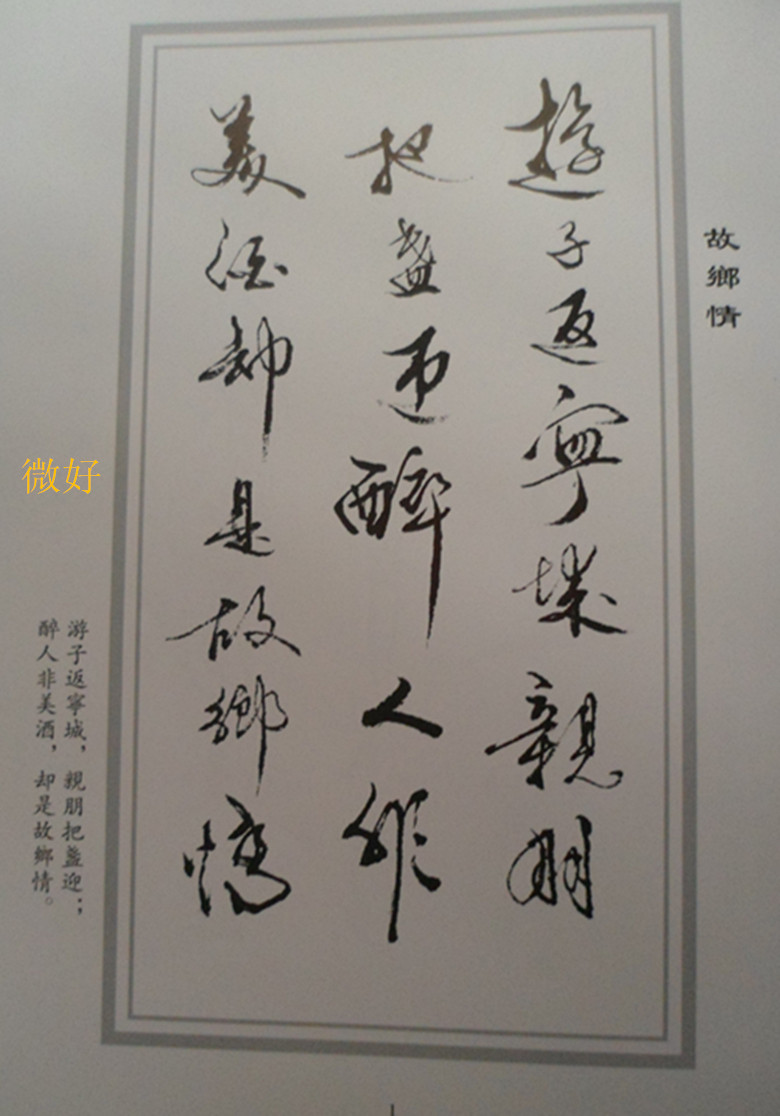 故鄉情
遊子返寧城親朋
把盞迎醉人非
美酒却是故鄉情
游子返寧城，親朋把盞迎；
醉人非美酒，却是故鄉情。
微好
1